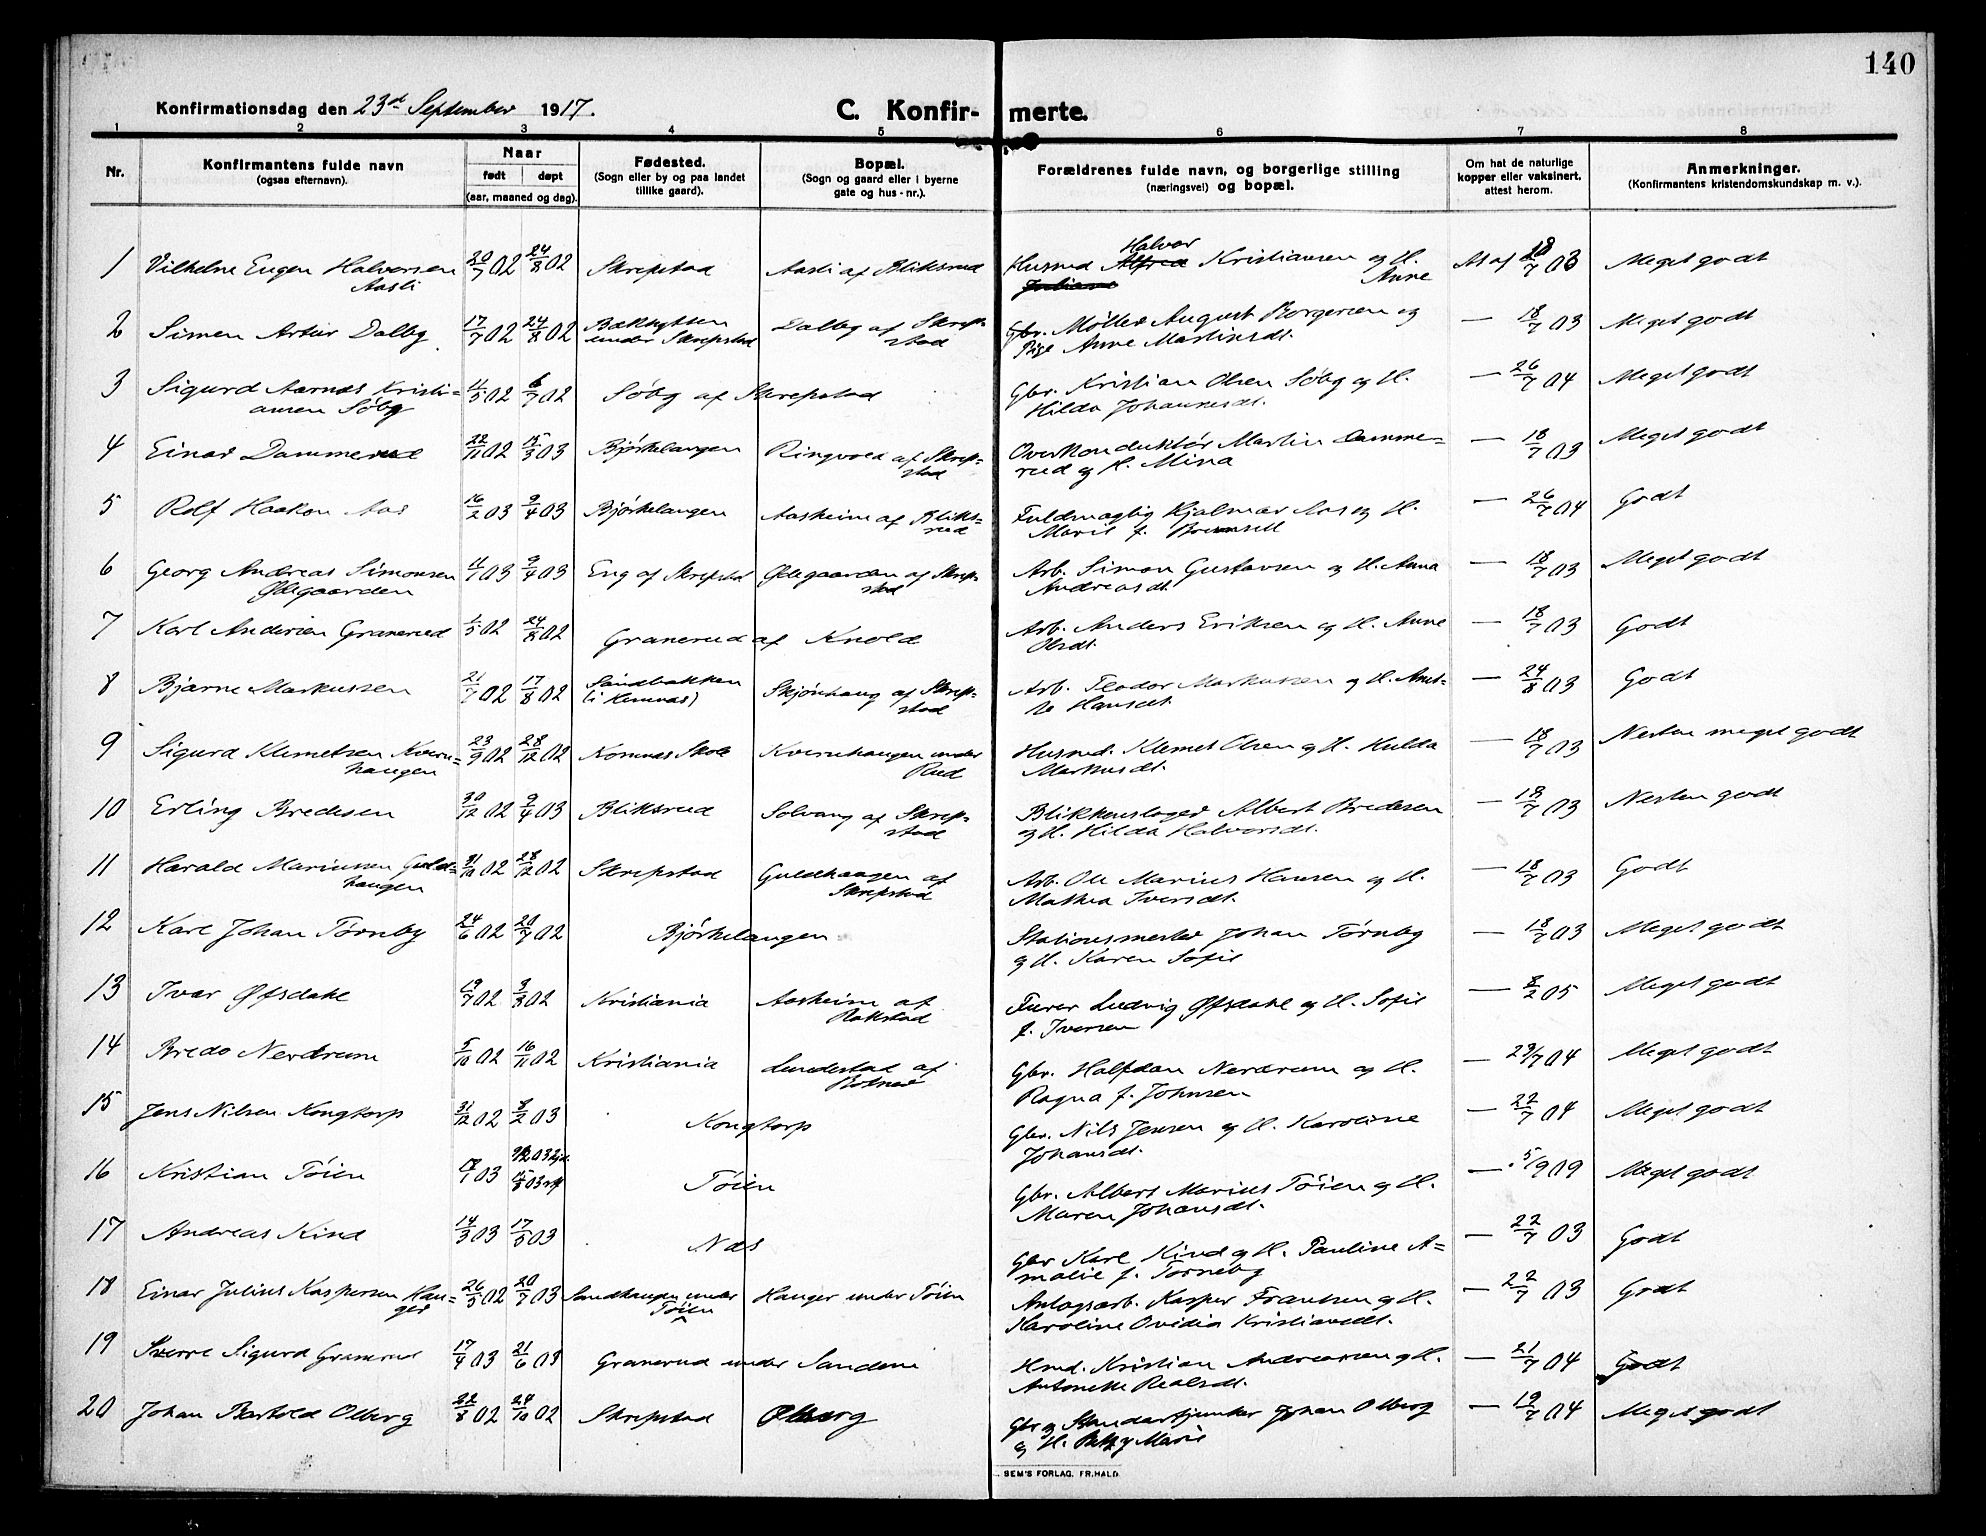 140
Konfirmationsdag den 23de September 1917.
C. Konfirmerte.
1 2 3 4 5 6 7 8
Nr. Konfirmantens fulde navn (ogsaa efternavn). Naar født døpt (aar, maaned og dag). Fødested. (Sogn eller by og paa landet tillike gaard). Bopæl. (Sogn og gaard eller i byerne gate og hus-nr.). Forældrenes fulde navn, og borgerlige stilling (næringsvei) og bopæl. Om hat de naturlige kopper eller vaksinert, attest herom. Anmerkninger. (Konfirmantens kristendomskundskap m. v.).
1 Vilhelm Eugen Halvorsen Aasli 20/7 02 24/8 02 Skrepstad Aasli af Bliksrud Husmd Halvor Kristiansen og H. Anne At af 18/7 03 Meget godt
2 Simen Artur Dalby 17/7 02 24/8 02 Bakhytten under Skrepstad Dalby af Skrepstad Gbr. Møller August Borgersen og Pige Anne Martinsdt. — 18/7 03 Meget godt
3 Sigurd Aarnæs Kristiansen Søby 11/5 02 6/7 02 Søby af Skrepstad Gbr. Kristian Olsen Søby og H. Hilda Johannesdt. — 26/7 04 Meget godt
4 Einar Dammerud 22/11 02 15/3 03 Bjørkelangen Ringvold af Skrepstad Overkonduktør Martin Dammerud og H. Mina — 18/7 03 Meget godt
5 Rolf Haakon Aas 16/2 03 9/4 03 Bjørkelangen Aasheim af Bliksrud Fuldmægtig Hjalmar Aas og H. Marie f. — 26/7 04 Godt
6 Georg Andreas Simonsen Ødegaarden 11/1 03 9/4 03 Eng af Skrepstad Ødegaarden af Skrepstad Arb. Simon Gustavsen og H. Anna Andreasdt. — 18/7 03 Meget godt
7 Karl Andersen Granerud 1/5 02 24/8 02 Granerud af Knold Arb. Anders Eriksen og H. Anne Olsdt. — 18/7 03 Godt
8 Bjarne Markussen 21/7 02 17/8 02 Sandbakken (i Hemnæs) Skjønhaug af Skrepstad Arb. Teodor Markussen og H. Anette Hansdt. — 24/8 03 Godt
9 Sigurd Klemetsen Kvernhaugen 23/9 02 28/12 02 Komnæs Skole Kvernhaugen under Rud Husmd. Klemet Olsen og H. Hulda Markusdt. — 18/7 03 Nesten meget godt
10 Erling Bredesen 30/12 02 9/4 03 Bliksrud Solvang af Skrepstad Blikkenslager Albert Bredesen og H. Hilda Halvorsdt. — 18/7 03 Nesten godt
11 Harald Mariussen Guldhaugen 31/10 02 28/12 02 Skrepstad Guldhaugen af Skrepstad Arb. Ole Marius Hansen og H. Mathea Iversdt. — 18/7 03 Godt
12 Karl Johan Tørneby 24/6 02 20/7 02 Bjørkelangen Stationsmester Johan Tørneby og H. Karen Sofie — 18/7 03 Meget godt
13 Ivar Øfsdahl 19/7 02 3/8 02 Kristiania Aasheim af Rakstad Furer Ludvig Øfsdahl og H. Sofie f. Iversen — 8/2 05 Meget godt
14 Bredo Nerdrum 5/10 02 16/11 02 Kristiania Lundestad af Botner Gbr. Halfdan Nerdrum og H. Ragna f. Johnsen — 23/7 04 Meget godt
15 Jens Nilsen Kongtorp 31/12 02 8/2 03 Kongtorp Gbr. Nils Jensen og H. Karoline Johansdt. — 22/7 04 Meget godt
16 Kristian Tøien 03 Tøien Gbr. Albert Marius Tøien og H. Maren Johansdt. — 5/9 09 Meget godt
17 Andreas Kind 14/3 03 17/5 03 Næs Gbr Karl Kind og H. Pauline Amalie f. Tørneby — 22/7 03 Godt
18 Einar Julius Kaspersen Hanger 26/5 02 20/7 03 Sandhaugen under Tøien Hanger under Tøien Anlægsarb. Kasper Frantsen og H. Karoline Ovidia Kristiansdt. — 22/7 03 Godt
19 Sverre Sigurd Granerud 17/4 03 21/6 03 Granerud under Sanden Hmd. Kristian Andreassen og H. Antonette Realsdt. — 21/7 04 Godt
20 Johan Bertold Olberg 22/8 02 24/10 02 Skrepstad Olberg Gbr og Standartjunker Johan Olberg og H. Betzy Marie — 19/7 04 Meget godt
SEM'S FORLAG. FR.HALD.